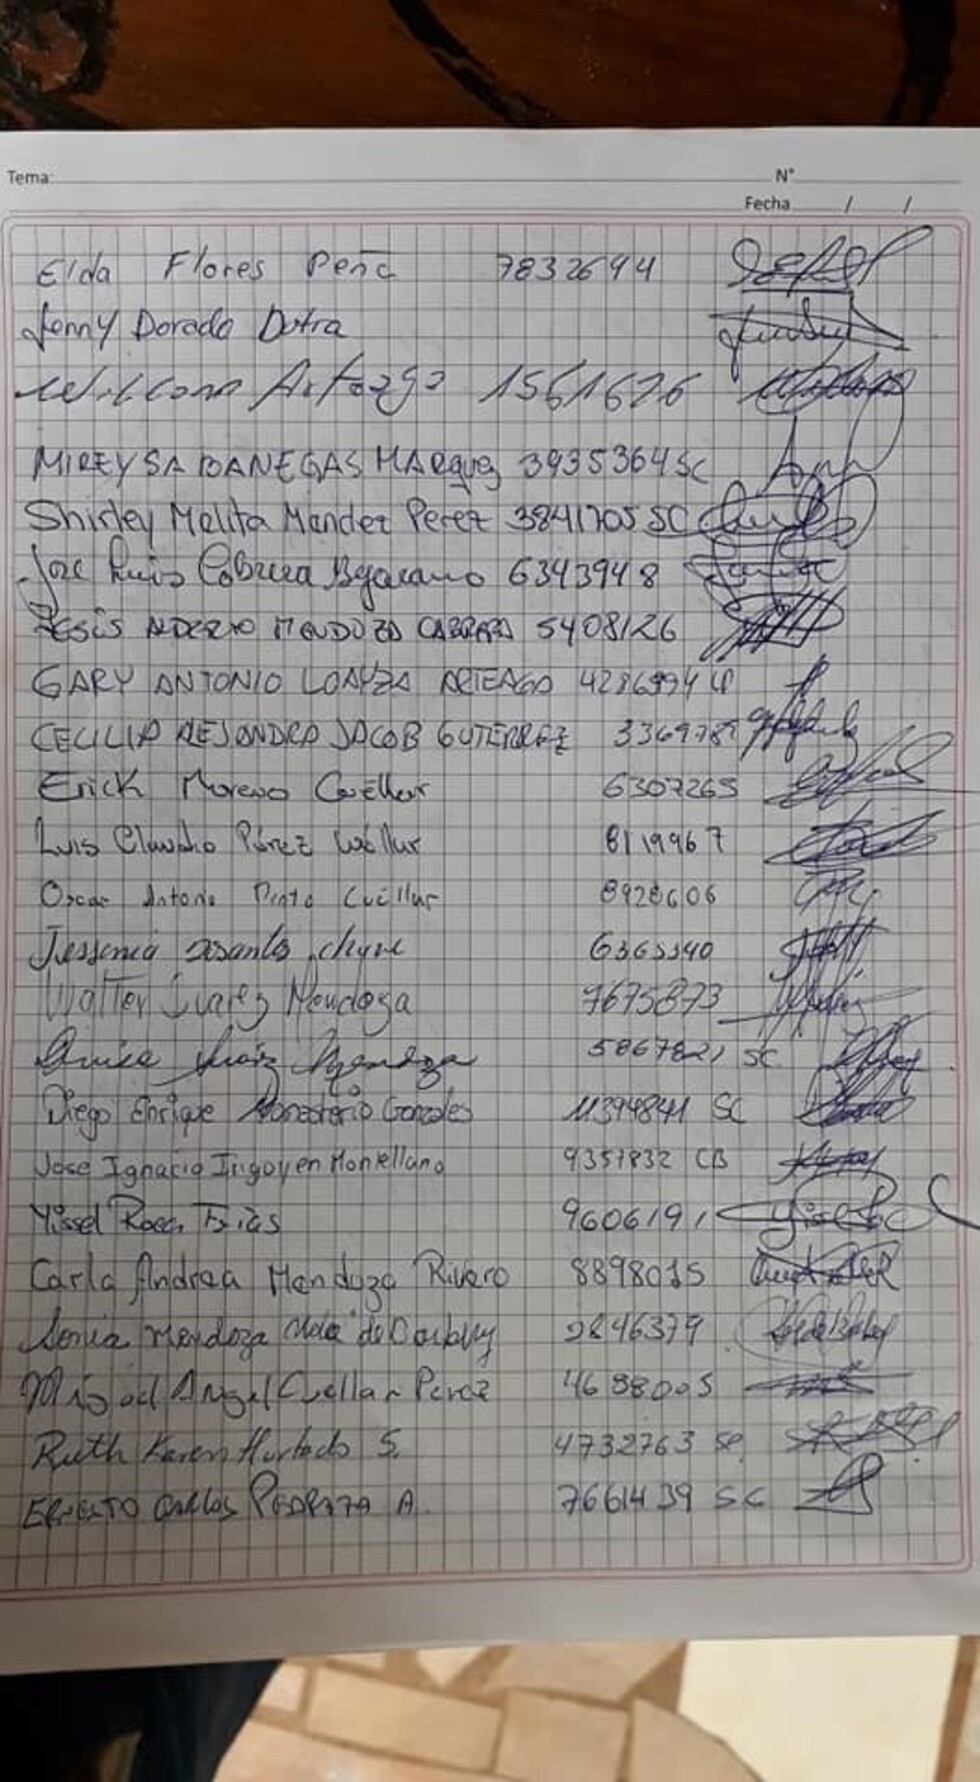 Tema:
N°
Fecha / /
Elda Flores Peña 7832694
Jenny Dorado Dutra
William Arteaga 1561626
MIREYSA BANEGAS MARquez 3935364 SC
Shirley Melita Mendez Perez 3841705 SC
Jose Luis Cabrera Bejarano 6343948
JESÚS MENDOZA CABRERA 5408126
GARY ANTONIO LOAYZA ARTEAGA 4286994 LP
CECILIA ALEJANDRA JACOB GUTIERREZ 3369787
Erick Moreno Cuéllar 6307265
Luis Claudio Pérez Cuéllar 8119967
Oscar Antonio Pinto Cuéllar 8928606
Jessenia Dosantos 6363340
Walter Suarez Mendoza 7675873
Suarez Mendoza 5867821 SC
Diego Enrique Monasterio Gonzales 11394841 SC
Jose Ignacio Irigoyen Montellano 9357832 CB
Yissel Roca Frias 9606191
Carla Andrea Mendoza Rivero 8898035
Sonia Mendoza de 2846379
Miguel Angel Cuellar Perez 4698005
Ruth Karen Hurtado S. 4732763 SC
ERNESTO Carlos PEDRAZA A. 7661439 SC